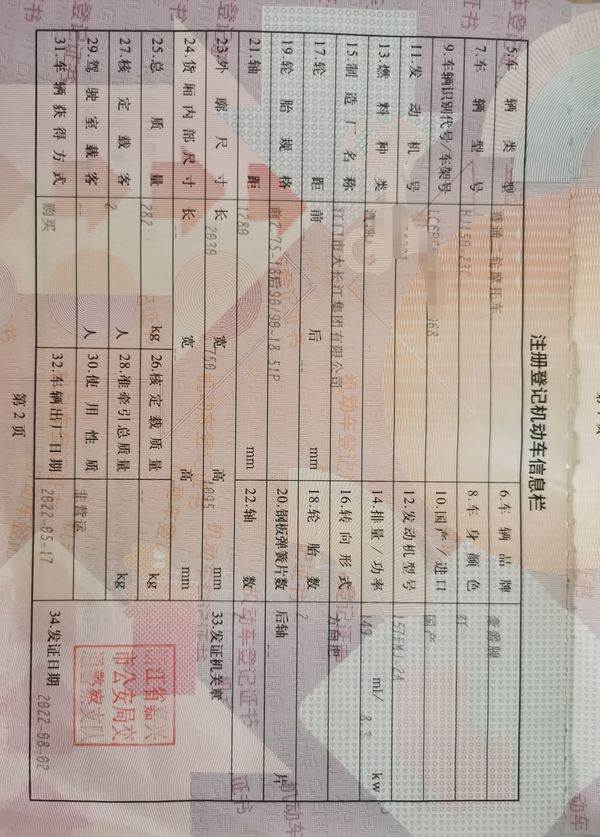 注册登记机动车信息栏
5.车辆类型 普通二轮摩托车 6.车辆品牌 豪爵牌
7.车辆型号 HJ150-23C 8.车身颜色 红
9.车辆识别代号/车架号 168 10.国产/进口 国产
11.发动机号 12.发动机型号 157FMJ-2A
13.燃料种类 汽油 14.排量/功率 149 ml/ 8.3 kw
15.制造厂名称 江门市大长江集团有限公司 16.转向形式 方向把
17.轮距 前 -- 后 -- mm 18.轮胎数 2
19.轮胎规格 前2.75-18后90/90-18 51P 20.钢板弹簧片数 后轴 片
21.轴距 1280 mm 22.轴数 2
23.外廓尺寸 长 2030 宽 750 高 1095 mm 33.发证机关章
24.货厢内部尺寸 长 宽 -- 高 mm
25.总质量 282 kg 26.核定载质量 -- kg
27.核定载客 2 人 28.准牵引总质量 -- kg
29.驾驶室载客 -- 人 30.使用性质 非营运
31.车辆获得方式 购买 32.车辆出厂日期 2022-05-17 34.发证日期 2022-08-02
浙江省嘉兴
市公安局交
通警察支队
第2页